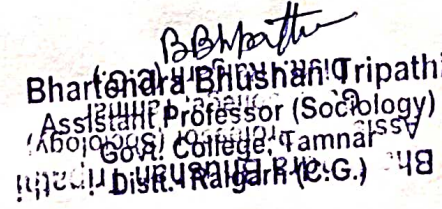 Bhartendra Bhushan Tripathi
Assistant Professor (Sociology)
Govt. College, Tamnar
Distt.- Raigarh (C.G.)